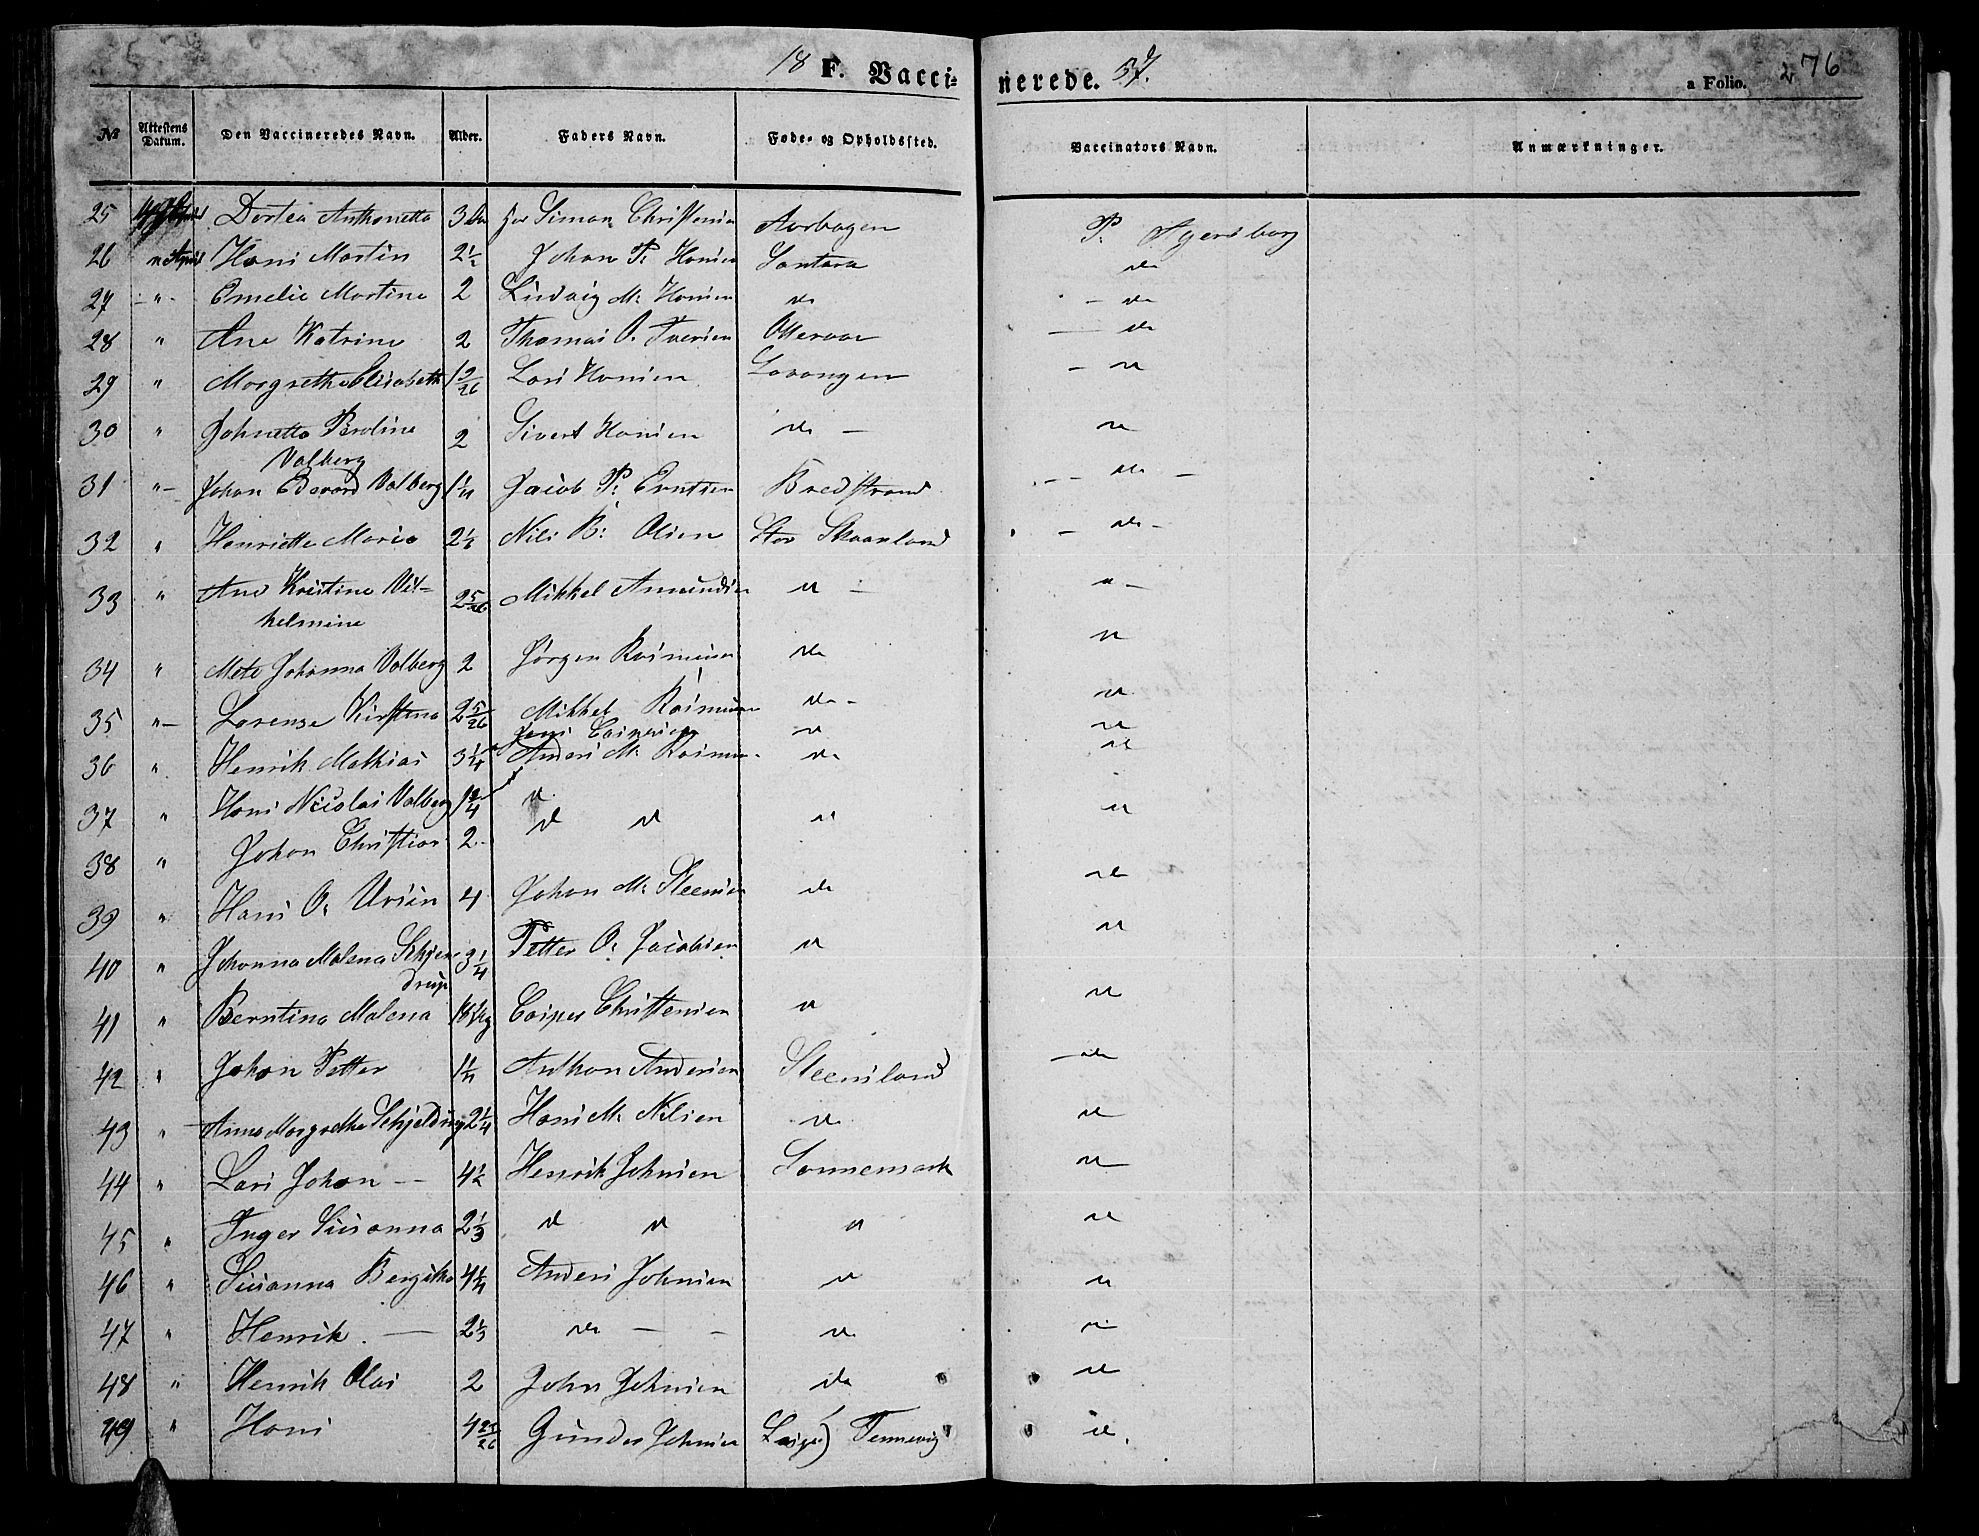 18 F. Vaccinerede. 37. a Folio. 276
№ Attestens Datum. Den Vaccineredes Navn. Alder. Faders Navn. Føde- og Opholdssted. Vaccinators Navn. Anmærkninger.
25 Dortea Anthonetta 3 Simon Christensen Aarbogen P.
26 " Hans Martin 2½ Johan P. Hansen Santara do
27 " Emelie Martine 2 Ludvig M. Hansen do do
28 " Ane Katrine 2 Thomas O. Iversen do
29 " Margrethe Elisabeth Lars Hansen Lavangen do
30 " Johnetta Broline 2 Sivert Hansen do do
Valberg
31 " Johan Edevard Valberg 1¼ Jacob P. Erntsen Bredstrand do
32 " Henriette Marie Nils B: Olsen Stor Skaanland do
33 " Ane Kristine Vil- 2 5/26 Mikkel Amundsen do do
helmine
34 " Mete Johanna Valberg 2 Jørgen Rasmusen do do
35 " Lorense Kirstina 2 5/26 Mikkel Rasmusen do do
Jens do do
36 " Henrik Mathias 3¼ Anders M. Rasmusen do do
37 " Hans Nicolai Valberg do
38 " Johan Christian 2 do do do do
39 " Hans O. 4 Johan M. Steensen do do
40 " Johanna Malena Schjel- 3¼ Petter O. Jacobsen do do
drup
41 " Berntina Malena Casper Christensen do do
42 " Johan Petter 1¼ Anthon Andersen Steensland do
43 " Anna Margrethe Schjeldrup 2¼ Hans M. Nilsen do do
44 " Lars Johan 4½ Henrik Johnsen Sannemark do
45 " Inger Susanna 2⅓ do do do do
46 " Susanna Bergitha 4¼ Anders Johnsen do do
47 " Henrik 2⅓ do do do
48 " Henrik Olai 2 John Johnsen do do
49 " Hans Gunder Johnsen Tennevig do